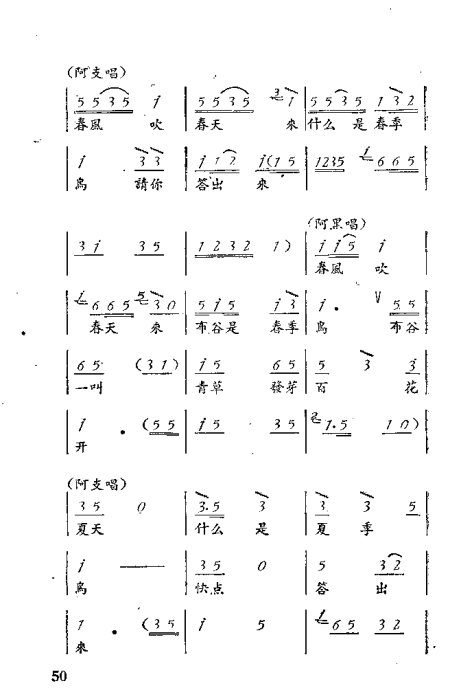 (阿支唱)
5 5 3 5 i 5 5 3 5 3 i 5 5 3 5 i 3 2
春風 吹 春天 來 什么 是 春季
i 3 3 i i 2 i(i 5 1235 i 6 6 5
鳥 請你 答出 來
3 i 3 5 1 2 3 2 1)
(阿黑唱)
i i 5 i
春風 吹
i 6 6 5 5 3 0 5 i 5 i 3 i . V 5 5
春天 來 布谷是 春季 鳥 布谷
6 5 (3 1) i 5 6 5 5 3 3
一叫 青草 發芽 百 花
i . (5 5 i 5 3 5 2 1.5 1 0)
开
(阿支唱)
3 5 0 3.5 3 3 3 5
夏天 什么 是 夏 季
i — 3 5 0 5 3 2
鳥 快点 答 出
1 . (3 5 i 5 i 6 5 3 2
來
50